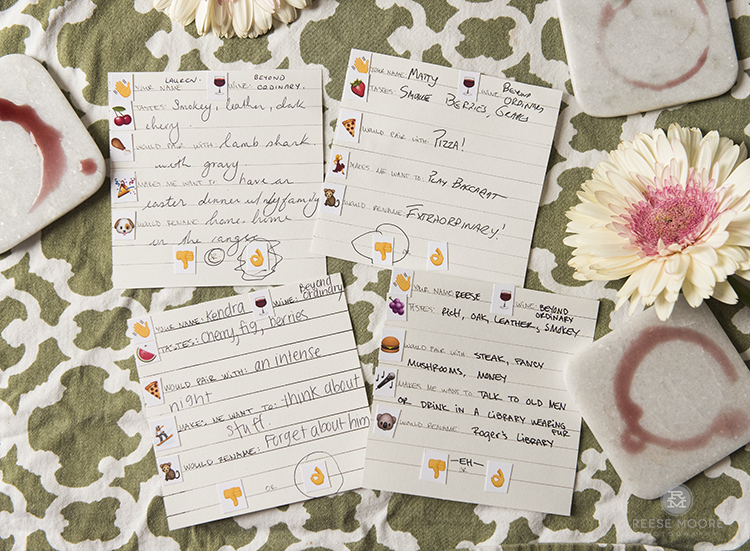 LAUREN
BEYOND
YOUR NAME
WINE: ORDINARY.
TASTES: Smokey, leather, dark
cherry
WOULD PAIR WITH: lamb shark
with gravy
MAKES ME WANT TO: have an
easter dinner w/ my family
WOULD RENAME: home home
in the range
OR
YOUR NAME: MATTY
WINE: BEYOND
ORDINARY
TASTES: SMOKE BERRIES, GRAPES
WOULD PAIR WITH: PIZZA!
MAKES ME WANT TO: PLAY BACCARAT
WOULD RENAME: EXTRAORDINARY!
YOUR NAME: Kendra
WINE: Beyond
Ordinary
TASTES: Cherry, fig, berries
WOULD PAIR WITH: an intense
night
MAKES ME WANT TO: think about
stuff.
WOULD RENAME: Forget about him
OR
YOUR NAME: REESE
WINE: BEYOND
ORDINARY
TASTES: RICH, OAK, LEATHER, SMOKEY
WOULD PAIR WITH: STEAK, FANCY
MUSHROOMS, MONEY
MAKES ME WANT TO: TALK TO OLD MEN
OR DRINK IN A LIBRARY WEARING
FUR
WOULD RENAME: ROGER'S LIBRARY
—EH—
OR
RM
REESE MOORE
PHOTOGRAPHY